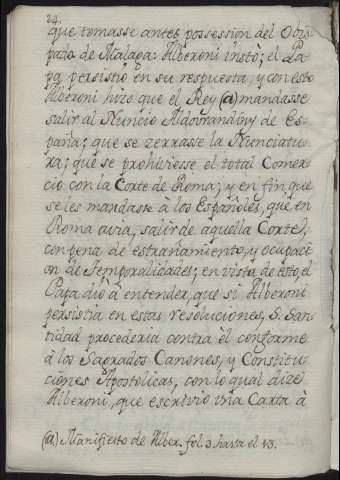 24.
que tomasse antes possession del Obis-
pado de Malaga: Alberoni instò; el Pa-
pa persistiò en su respuesta, y con esto
Alberoni hizo que el Rey (a) mandasse
salir al Nuncio Aldovrandiny de Es-
paña; que se zerrasse la Nunciatu-
ra; que se prohiviesse el total Comer-
cio con la Corte de Roma; y en fin que
se les mandasse à los Españoles, que en
Roma avia, salir de aquella Corte,
con pena de estrañamiento, y ocupaci-
on de Temporalidades; en vista de esto, el
Papa diò à entender, que si Alberoni
persistia en estas resoluciones, S. San-
tidad procederia contra èl conforme
à los Sagrados Canones, y Constitu-
ciones Apostolicas, con lo qual dize
Alberoni, que escrivio una Carta à
(a) Manifiesto de Alber. fol. 3 hasta el 13.